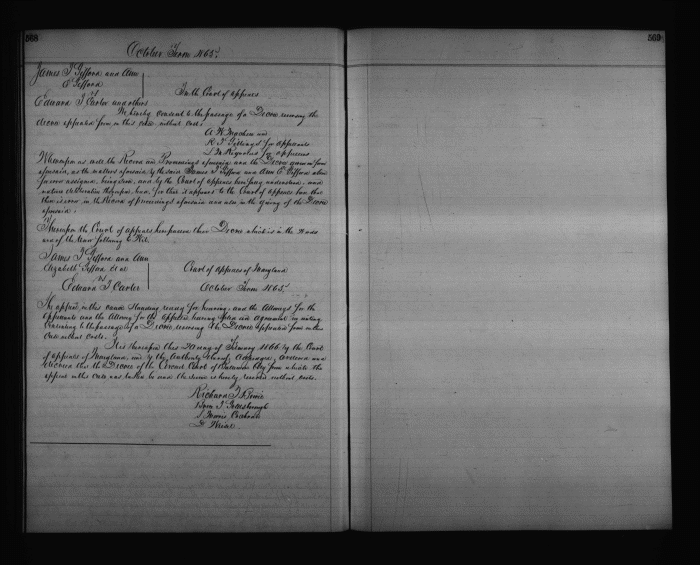 568
569
October Term 1865.
James T Gifford and Ann
E Gifford
vs
Edward T Carter and others
In the Court of appeals
We hereby consent to the passage of a Decree reversing the
decree appealed from in this case without costs.
for appellants
for appellees
Whereupon as well the Record and Proceedings aforesaid and the Decree given in form
aforesaid, as the matters aforesaid by the said James T Gifford and Ann E Gifford above
for error assigned, being seen, and by the Court of appeals here fully understood, and
mature deliberation thereupon had, for that it appears to the Court of appeals here that
there is error in the Record of proceedings aforesaid and also in the giving of the Decree
aforesaid:
Thereupon the Court of appeals here passed their Decree which is in the words
and of the tenor following to Wit:
James T Gifford and Ann
Elizabeth Gifford et al
vs
Edward T Carter
Court of appeals of Maryland
October Term 1865.
The appeal in this cause standing ready for hearing, and the Attorneys for the
appellants and the Attorney for the appellees having filed an agreement in writing
Consenting to the passage of a Decree reversing the Decree appealed from in this
case without costs.
It is thereupon this day of February 1866 by the Court
of appeals of Maryland, and by the authority thereof, Adjudged, ordered and
decreed that the Decree of the Circuit Court of Baltimore City from which the
appeal in this case was taken be and the same is hereby reversed without costs.
Richard J Bowie
Brice J Goldsborough
J Cochran
D Weisel